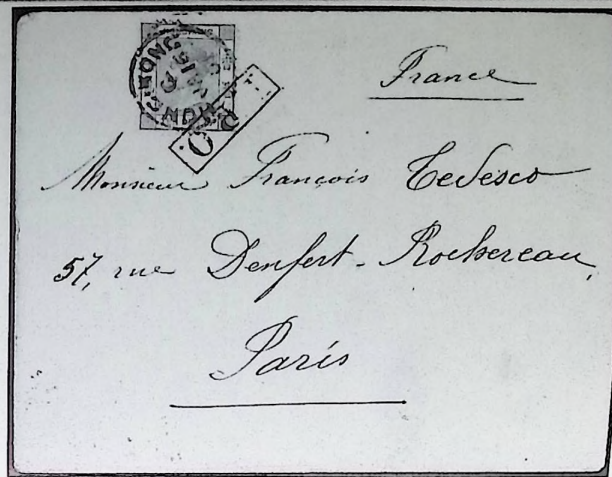 HONG KONG
France
Monsieur François Tedesco
57, rue Denfert-Rochereau,
Paris